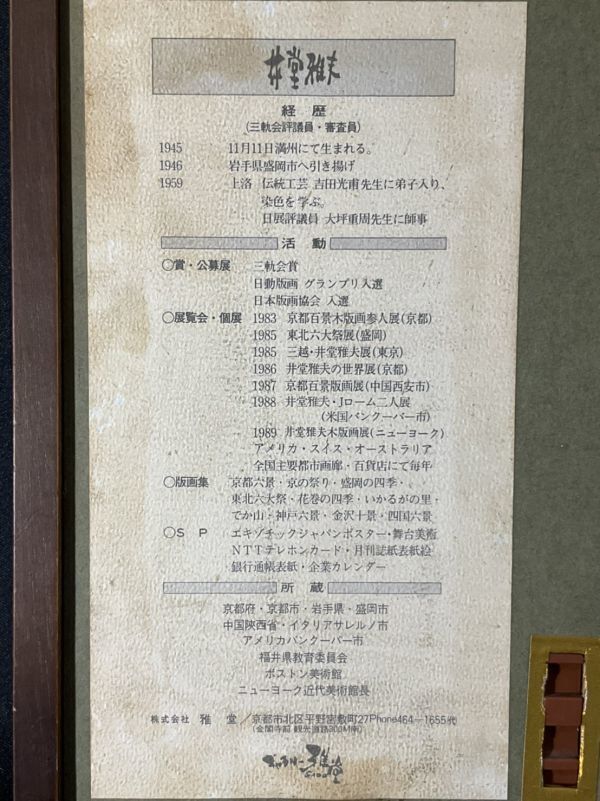 井堂雅夫
経歴
(三軌会評議員・審査員)
1945 11月11日満州にて生まれる。
1946 岩手県盛岡市へ引き揚げ
1959 上洛 伝統工芸 吉田光甫先生に弟子入り、
染色を学ぶ。
日展評議員 大坪重周先生に師事
活動
○賞・公募展 三軌会賞
日動版画 グランプリ入選
日本版画協会 入選
○展覧会・個展 1983 京都百景木版画参人展(京都)
1985 東北六大祭展(盛岡)
1985 三越・井堂雅夫展(東京)
1986 井堂雅夫の世界展(京都)
1987 京都百景版画展(中国西安市)
1988 井堂雅夫・Jローム二人展
(米国バンクーバー市)
1989 井堂雅夫木版画展(ニューヨーク)
アメリカ・スイス・オーストラリア
全国主要都市画廊・百貨店にて毎年
○版画集 京都六景・京の祭り・盛岡の四季・
東北六大祭・花巻の四季・いかるがの里・
でか山・神戸六景・金沢十景・四国六景
○S P エキゾチックジャパンポスター・舞台美術
NTTテレホンカード・月刊誌紙表紙絵
銀行通帳表紙・企業カレンダー
所蔵
京都府・京都市・岩手県・盛岡市
中国陝西省・イタリアサレルノ市
アメリカバンクーバー市
福井県教育委員会
ボストン美術館
ニューヨーク近代美術館長
株式会社 雅堂/京都市北区平野宮敷町27Phone464-1655(代)
(金閣寺前 観光道路300M南)
ギャラリー雅堂